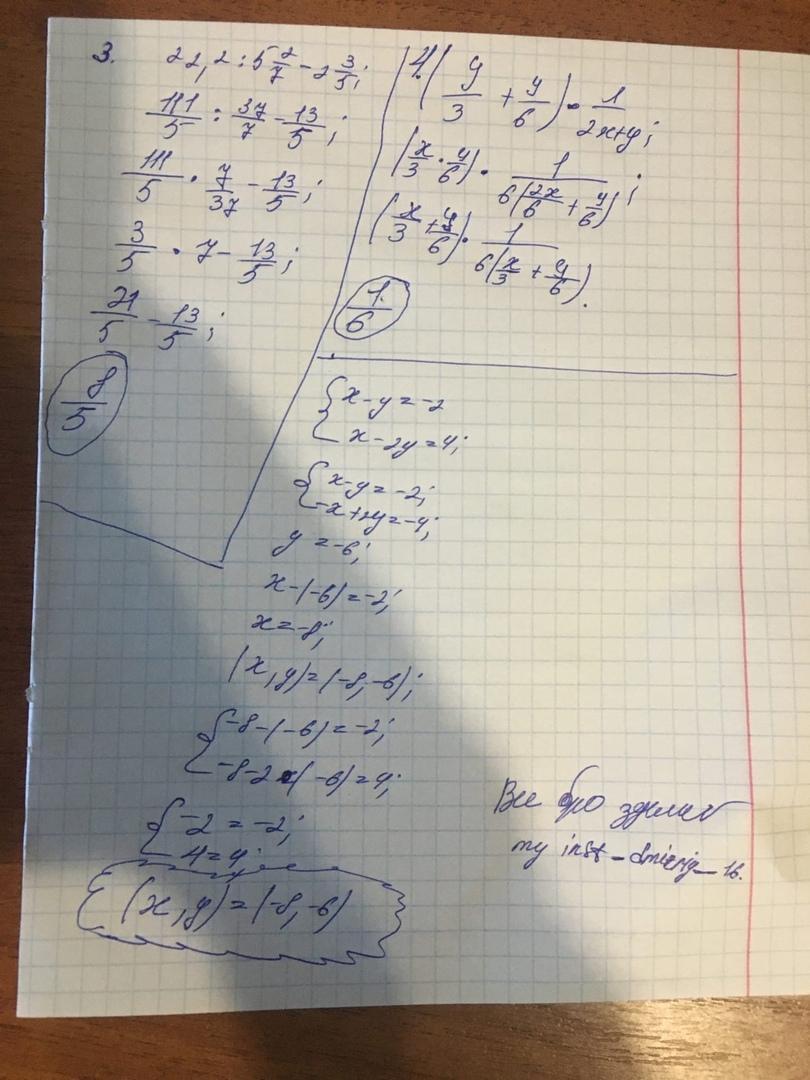 3. 22,2 : 5 2/7 - 2 3/5;
111/5 : 37/7 - 13/5;
111/5 · 7/37 - 13/5;
3/5 · 7 - 13/5;
21/5 - 13/5;
8/5
4. (y/3 + y/6) · 1/2x+y;
(x/3 · y/6) · 1/6(2x/6 + y/6);
(x/3 + y/6) · 1/6(x/3 + y/6).
1/6
{x-y=-2
x-2y=4;
{x-y=-2;
-x+2y=-4;
y=-6;
x-(-6)=-2;
x=-8;
(x,y)=(-8,-6);
{-8-(-6)=-2;
-8-2×(-6)=4;
{-2=-2;
4=4;
(x,y)=(-8,-6)
Все бро
my inst -